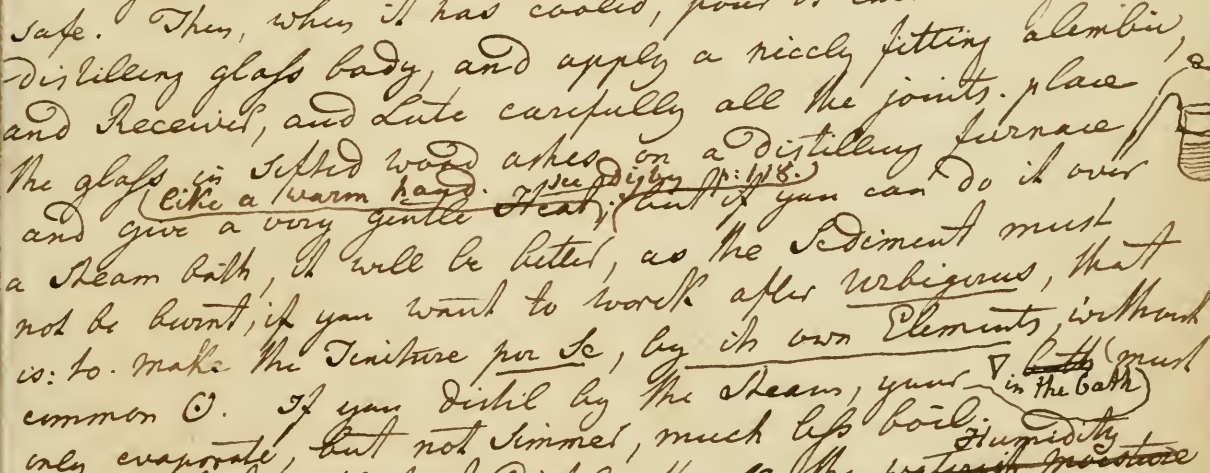 safe. Then, when it has cooled, pour
distilling glass body, and apply a nicely fitting alembic,
and Receiver, and Lute carefully all the joints. place
the glass in sifted wood ashes on a distilling furnace
(like a warm hand. see Digby p: 118.)
and give a very gentle Heat; (but if you can do it over
a steam bath, it will be better, as the Sediment must
not be burnt, if you want to worck after Urbigerus, that
is: to make the Tincture per Se, by its own Elements, without
common ☉. If you distil by the Steam, your ▽ bath (must
in the bath)
only evaporate, but not Simmer, much less boil.
Humidity
the waterish moisture